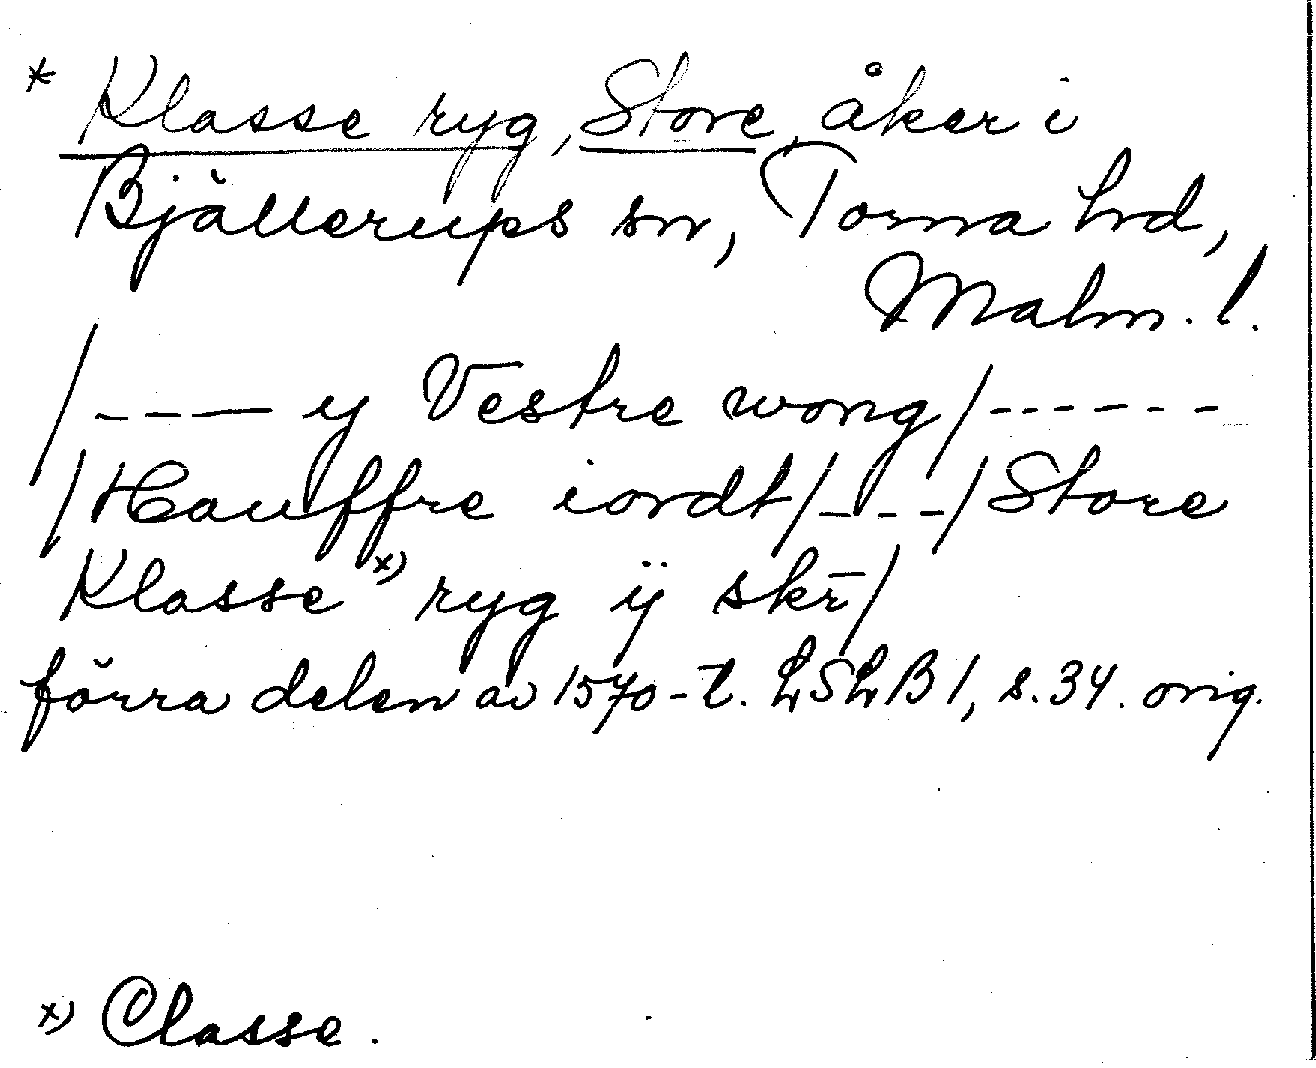 * Klasse ryg, Store, åker i
Bjällerups sn, Torna hrd,
Malm. l.
/ - - - - y Vestre wong / - - - - - -
/ Hauffre iordt / - - - / Store
Klasse x) ryg ÿ skr̄ /
förra delen av 1570-t. LSLB 1, s. 34. orig.
x) Classe.